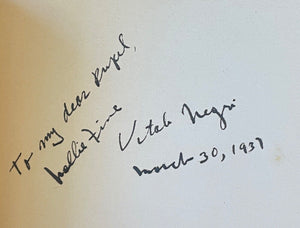 To my dear Pupil,
Mollie Fine
Vitale Negri
March 30, 1937